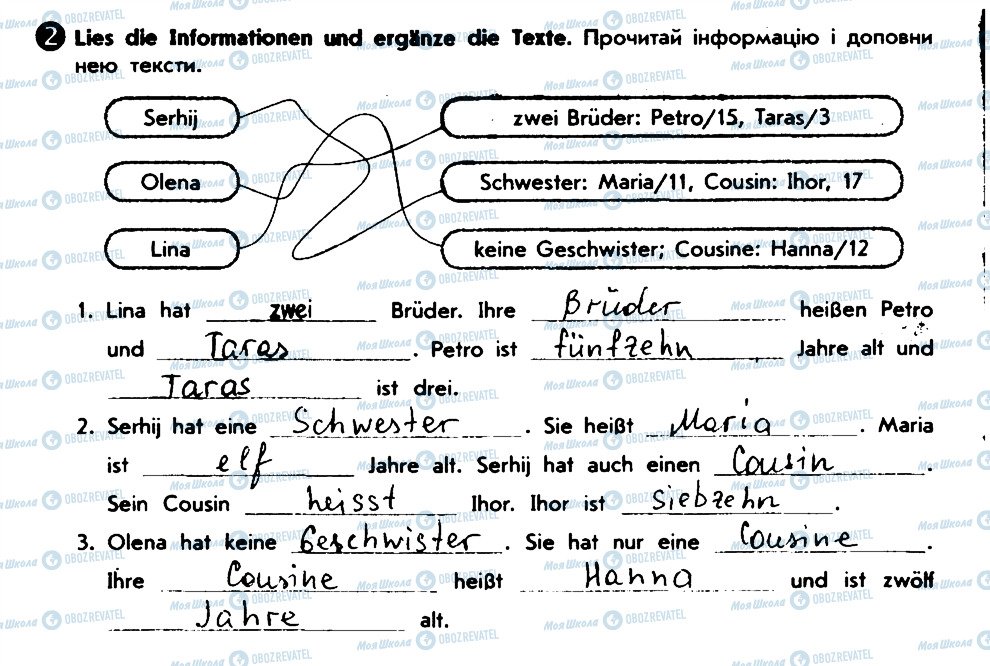 2 Lies die Informationen und ergänze die Texte. Прочитай інформацію і доповни
нею тексти.
Serhij
zwei Brüder: Petro/15, Taras/3
Olena
Schwester: Maria/11, Cousin: Ihor, 17
Lina
keine Geschwister; Cousine: Hanna/12
1. Lina hat zwei Brüder. Ihre Brüder heißen Petro
und Taras. Petro ist fünfzehn Jahre alt und
Taras ist drei.
2. Serhij hat eine Schwester. Sie heißt Maria. Maria
ist elf Jahre alt. Serhij hat auch einen Cousin.
Sein Cousin heisst Ihor. Ihor ist siebzehn.
3. Olena hat keine Geschwister. Sie hat nur eine Cousine.
Ihre Cousine heißt Hanna und ist zwölf
Jahre alt.
Моя Школа OBOZREVATEL